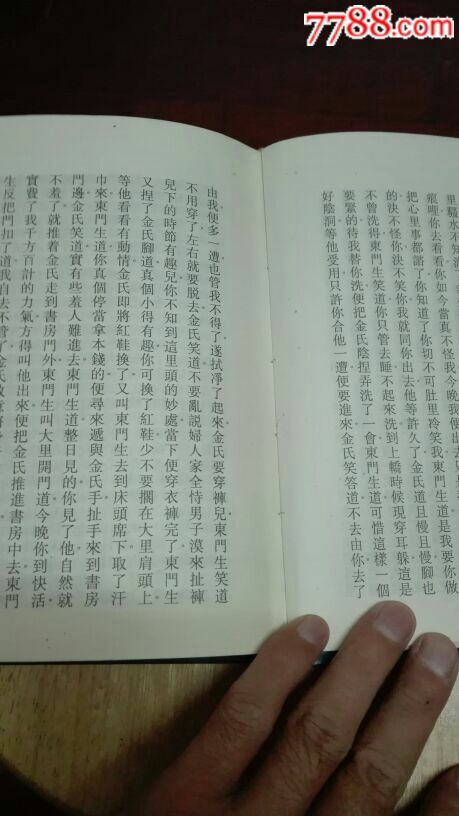 7788.com
中国收藏热线
里騷水不知
痕哩你去看看你如今當真不怪我今晚我便 要你做
把心里事都謟了你知道了你切不可肚里冷笑我東門生道
的決不怪你決不笑你我就同你出去他等許久了金氏道且慢且慢腳也
不曾洗得東門生笑道你只管去睡不起來洗到上轎時候現穿耳躲這是
要緊的待我替你洗便把金氏陰捏弄洗了一會東門生道可惜這樣一個
好陰洞等他受用只許你合他一遭便要進來金氏笑答道不去由你去了
由我便多一遭也管我不得了遂拭凈了起來金氏要穿褲兒東門生笑道
不用穿了左右就要脫去金氏笑道不要亂説婦人家全恃男子漠來扯褲
兒下的時節有趣兒你不知到這里頭的妙處當下便穿衣褲完了東門生
又捏了金氏腳道真個小得有趣你可換了紅鞋少不要擱在大里肩頭上
等他看看有動情金氏即將紅鞋換了又叫東門生去到床頭席下取了汗
巾來東門生道你真個停當拿本錢的便尋來遞與金氏手扯手來到書房
門邊金氏笑道實有些羞人難進去東門生道整日見的你見了他自然就
不羞了就推着金氏走到書房門外東門生叫大里開門道今晚你到快活
實費了我千方百計的力氣方得叫他出來便把金氏推進書房中去東門
生反把門扣了道我自去不管了金氏